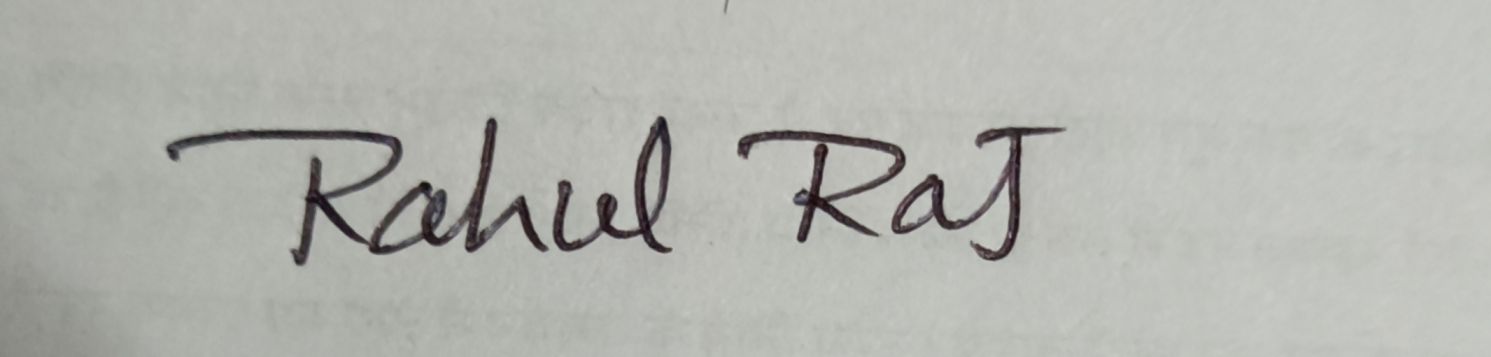 Rahul Raj